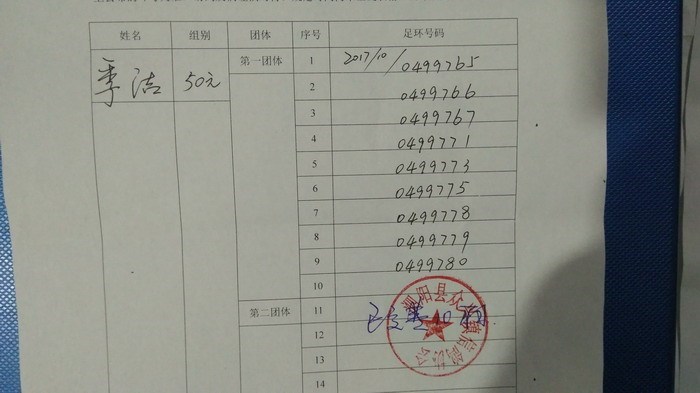 姓名 组别 团体 序号 足环号码
季洁 50元 第一团体 1 2017/10/0499765
2 0499766
3 0499767
4 0499771
5 0499773
6 0499775
7 0499778
8 0499779
9 0499780
10
第二团体 11
12
13
14
泗阳县众兴镇信鸽协会